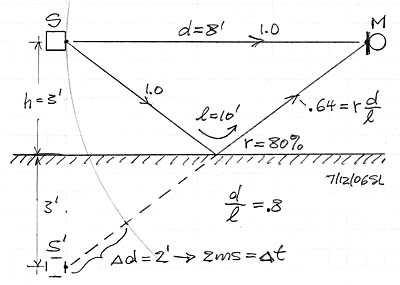 S
M
d=8'
1.0
1.0
h=3'
l=10'
.64=r d/l
r=80%
7/12/06SL
3'
d/l =.8
S'
Δd=2'→2ms=Δt